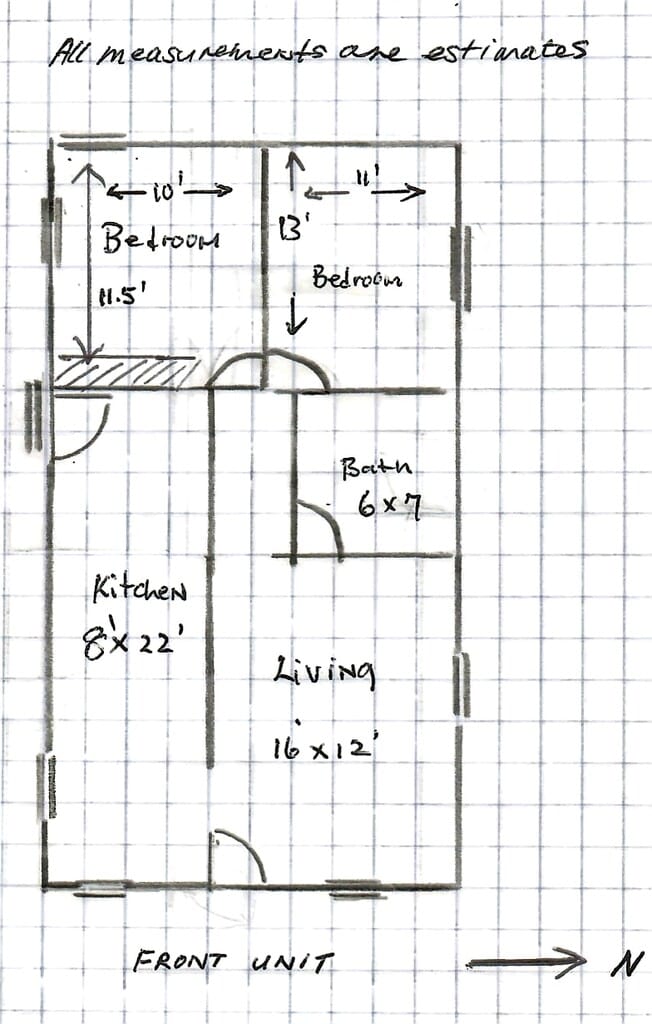 All measurements are estimates
10'
11'
Bedroom
13'
11.5'
Bedroom
Bath
6 x 7
Kitchen
8' x 22'
Living
16' x 12'
FRONT UNIT
N